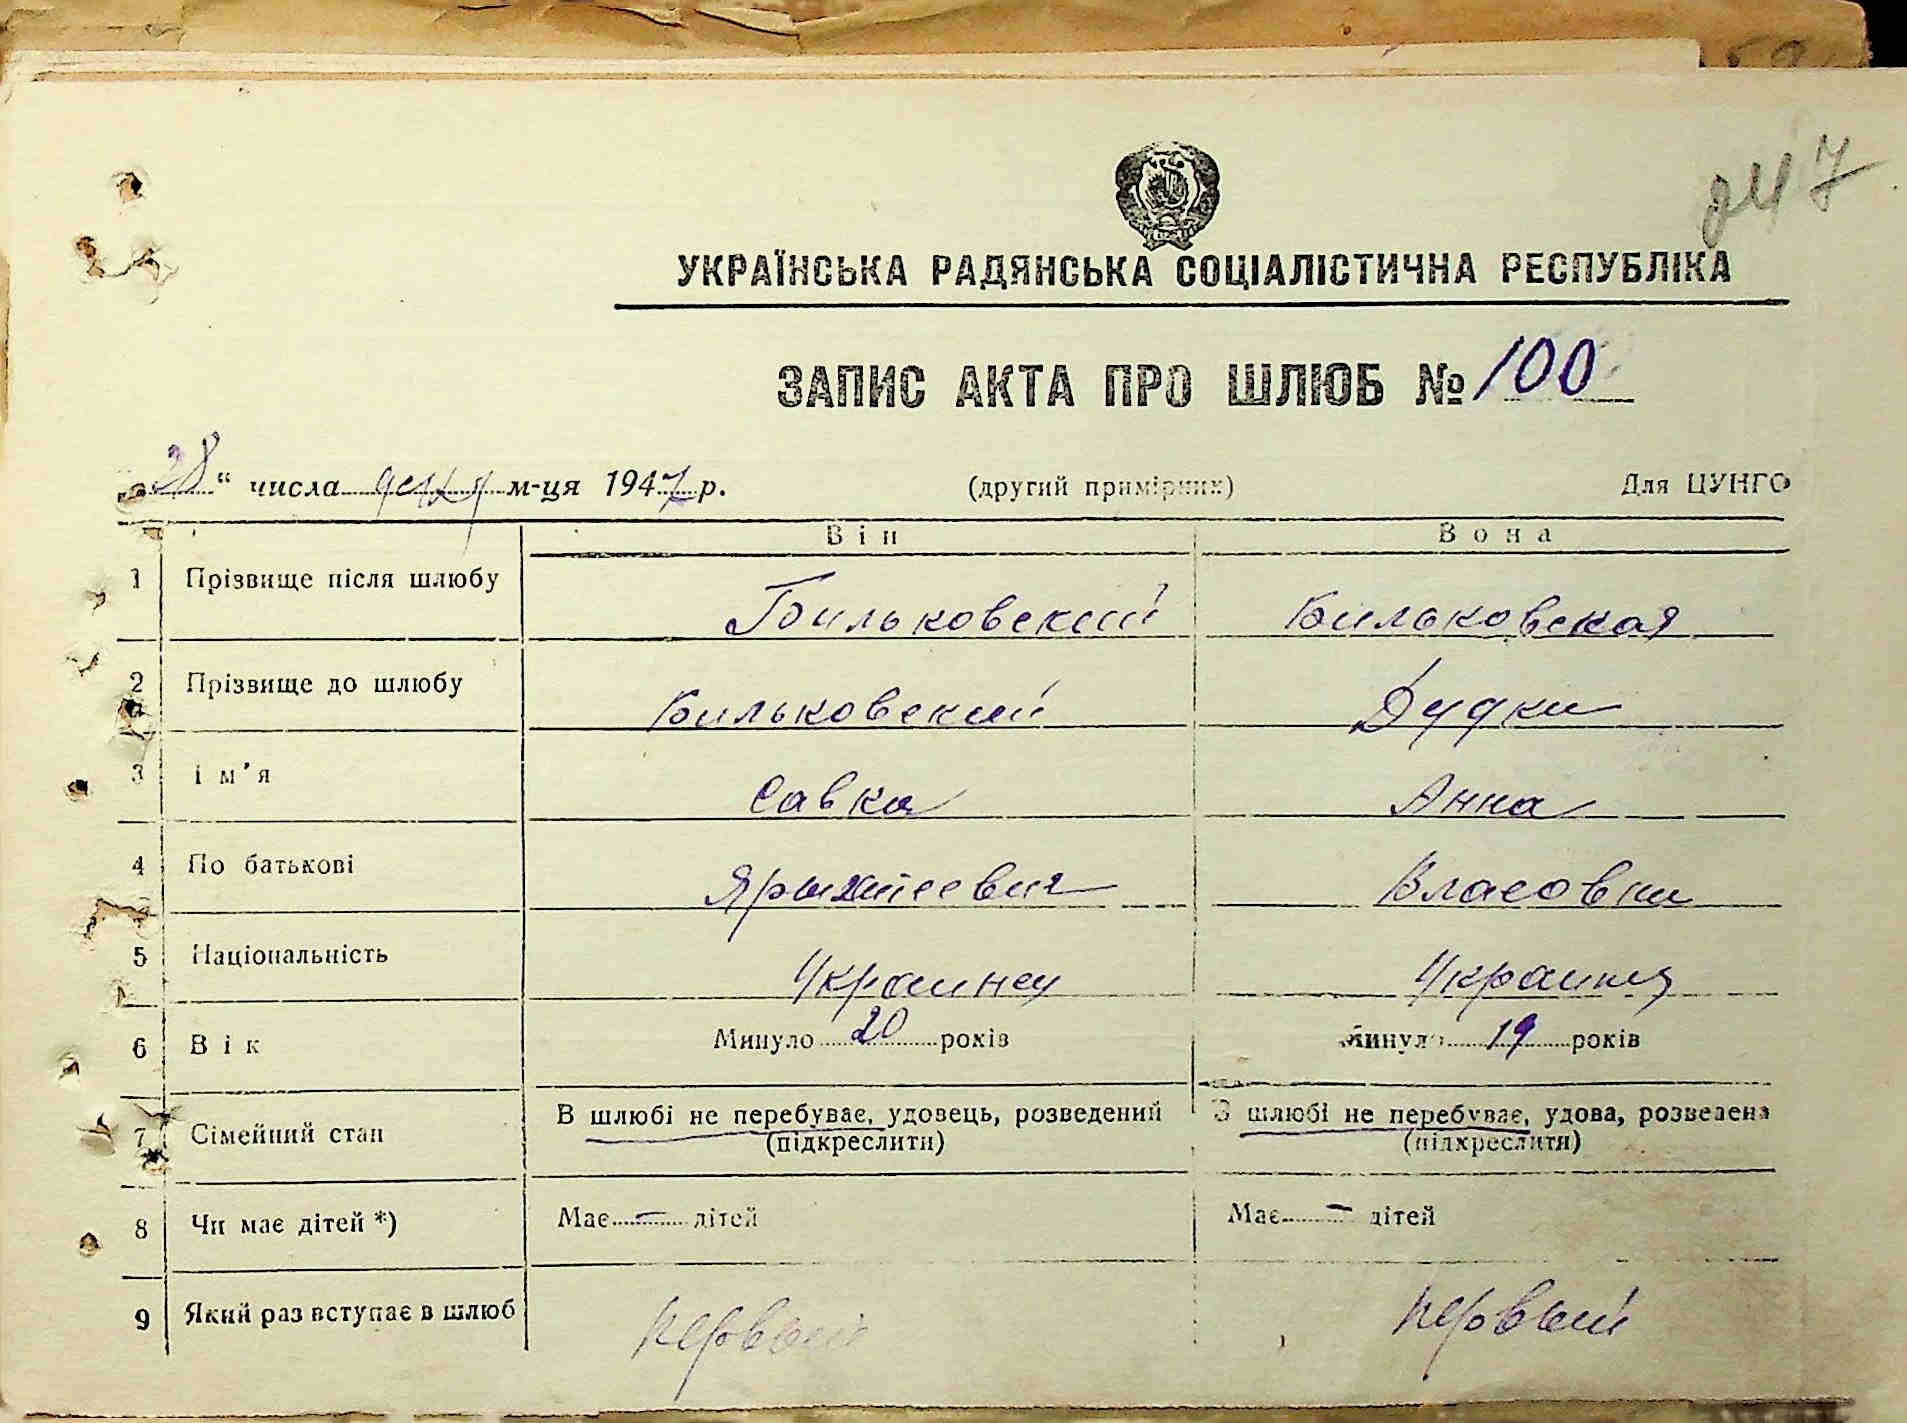 247
УКРАЇНСЬКА РАДЯНСЬКА СОЦІАЛІСТИЧНА РЕСПУБЛІКА
ЗАПИС АКТА ПРО ШЛЮБ № 100
28 " числа м-ця 1947 р. (другий примірник) Для ЦУНГО
Він Вона
1 Прізвище після шлюбу Бильковский Бильковская
2 Прізвище до шлюбу Бильковский Дудки
3 Ім'я Савка Анна
4 По батькові Власовна
5 Національність Украинец Украинка
6 Вік Минуло 20 років Минуло 19 років
7 Сімейний стан В шлюбі не перебуває, удовець, розведений В шлюбі не перебуває, удова, розведена
(підкреслити) (підкреслити)
8 Чи має дітей *) Має – дітей Має – дітей
9 Який раз вступає в шлюб первый первый